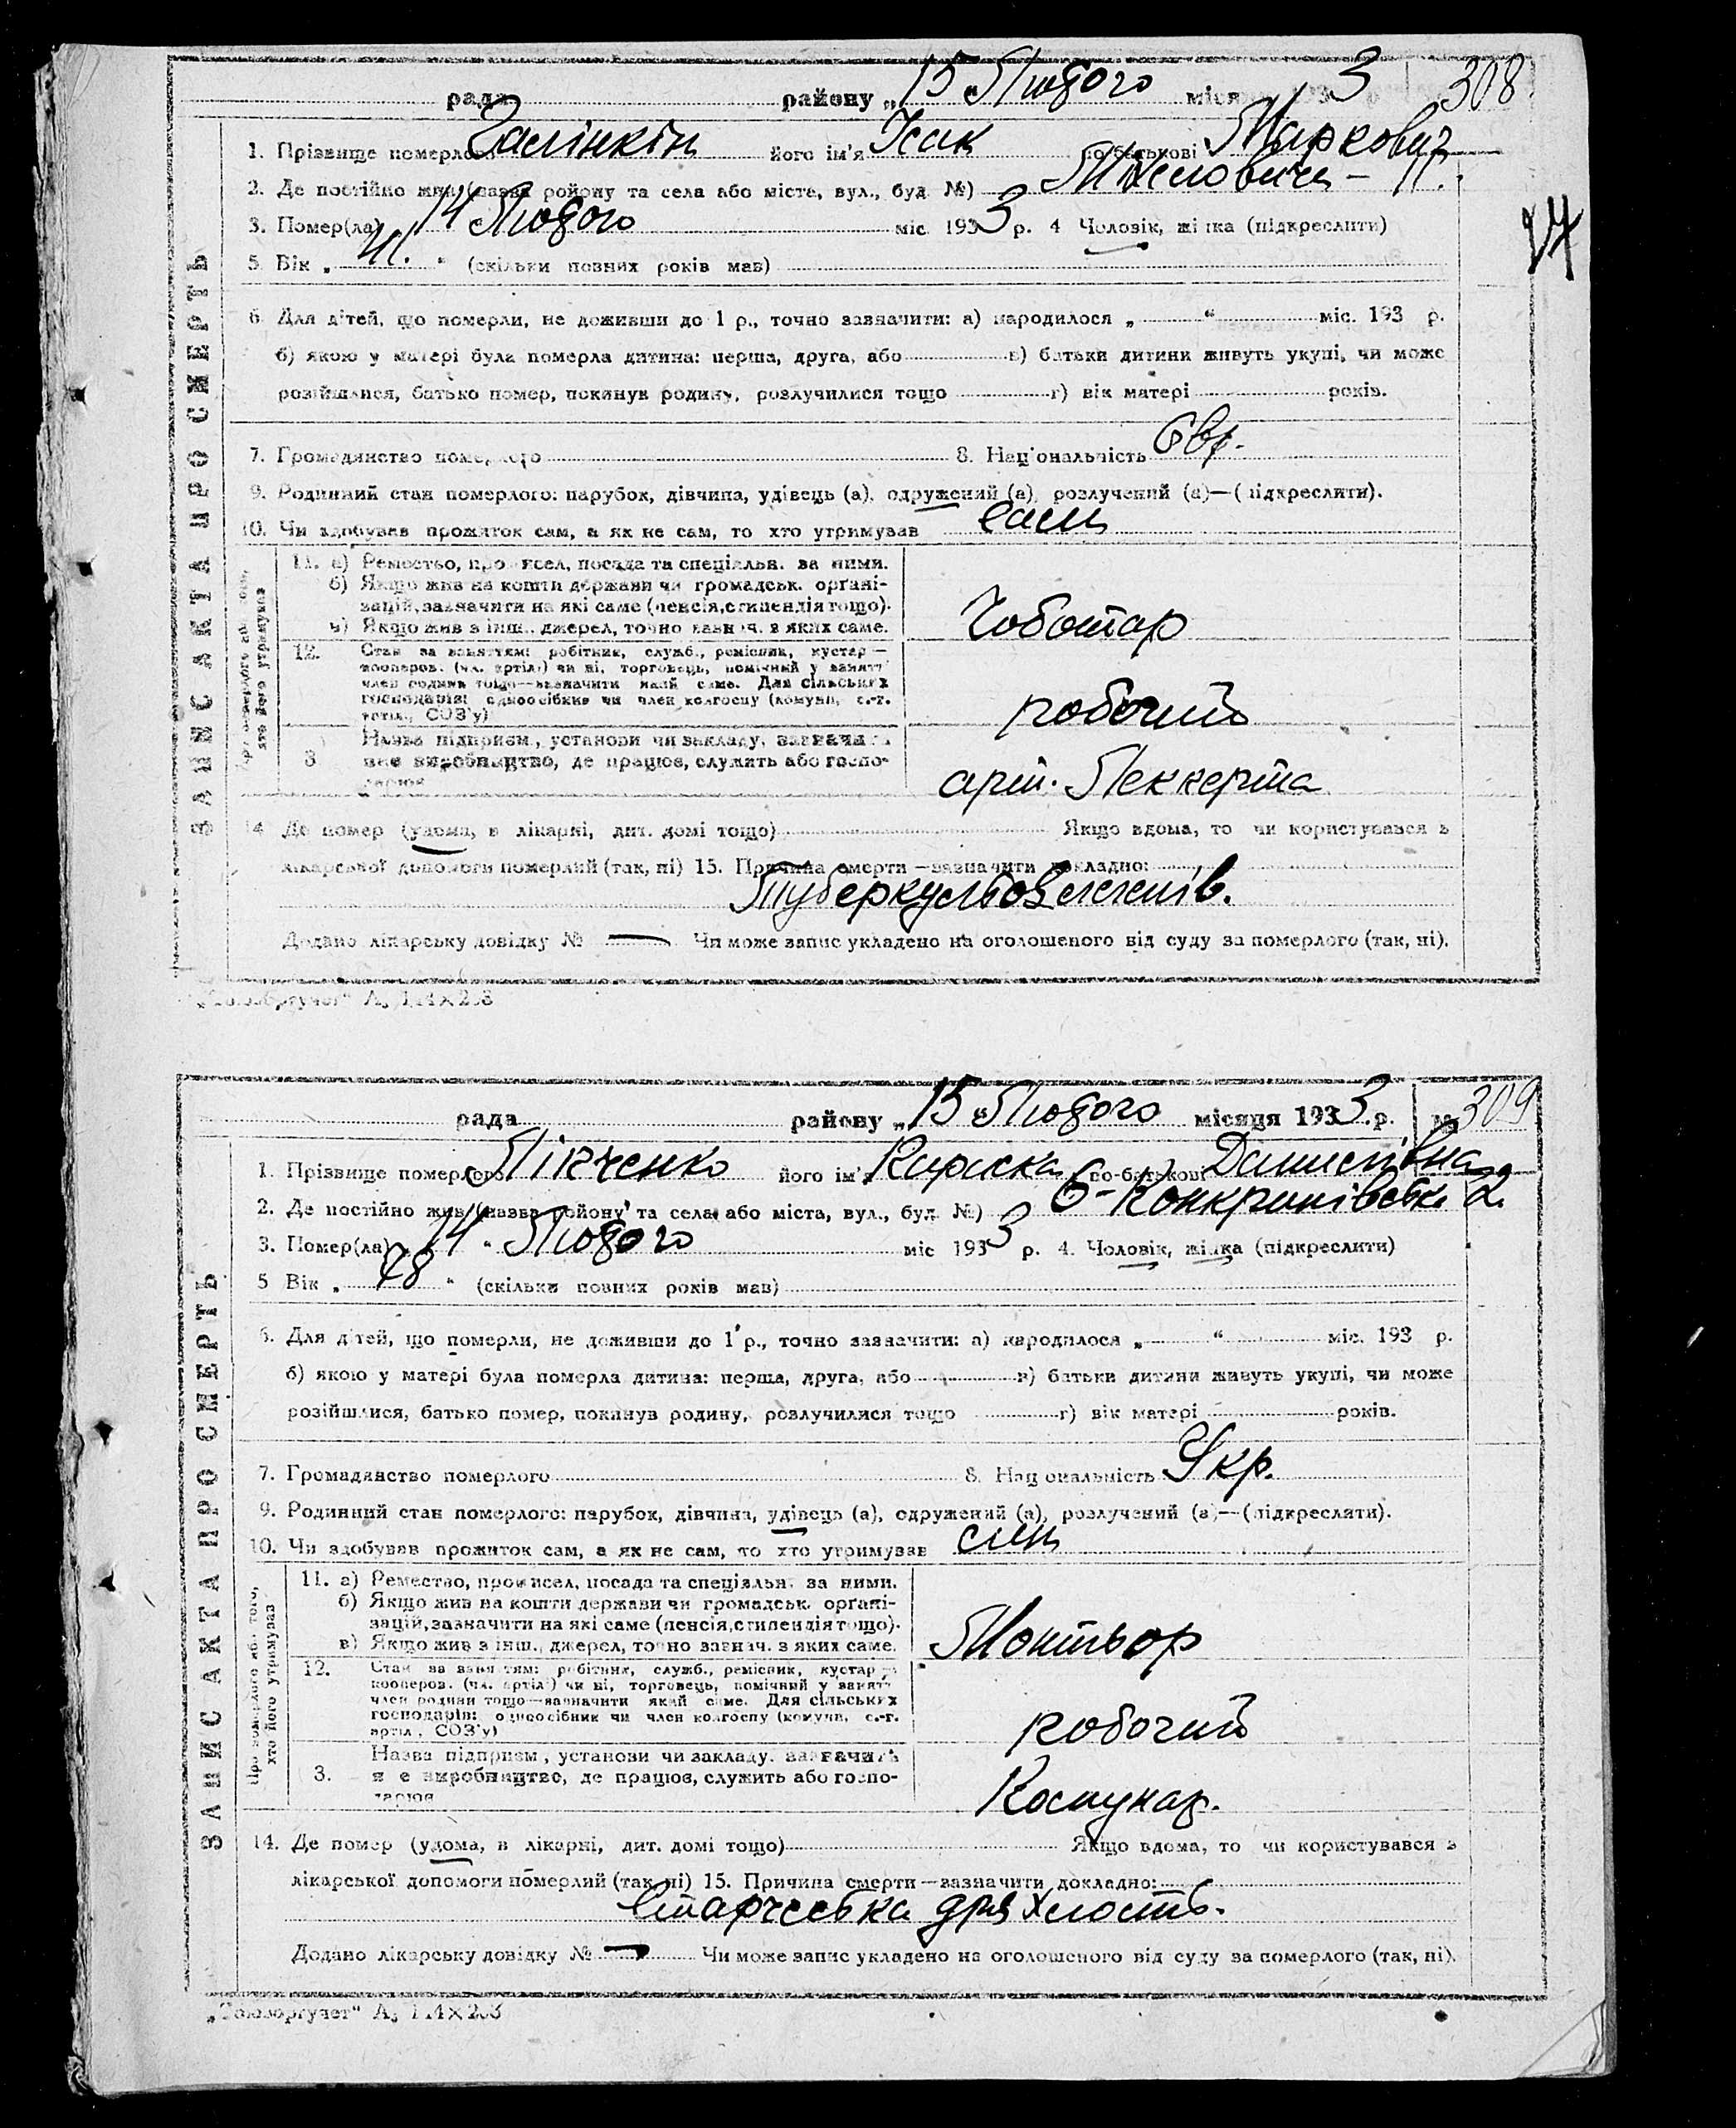 рада району „15 Лютого місяця 1933 р. 308
1. Прізвище померлого Галінкін його ім'я Ісак по-батькові Маркович
2. Де постійно жив (назва ройону та села або міста, вул., буд №)
3. Помер(ла) 14 Лютого міс 1933 р. 4 Чоловік, жінка (підкреслити)
5 Вік „ 41. “ (скільки повних років мав)
6. Для дітей, що померли, не доживши до 1 р., точно зазначити: а) народилося „ “ міс. 193 р.
б) якою у матері була померла дитина: перша, друга, або в) батьки дитини живуть укупі, чи може
розійшлися, батько помер, покинув родину, розлучилися тощо г) вік матері років.
7. Громадянство померлого 8. Національність Євр.
9. Родинний стан померлого: парубок, дівчина, удівець (а), одружений (а), розлучений (а)—(підкреслити).
10. Чи здобував прожиток сам, а як не сам, то хто утримував сам
ЗАПИС АКТА ПРО СМЕРТЬ
Про померлого або того, хто його утримував
11. а) Ремество, промисел, посада та спеціяльн. за ними.
б) Якщо жив на кошти держави чи громадськ. органі-
зацій, зазначити на які саме (пенсія, стипендія тощо).
в) Якщо жив з інш. джерел, точно зазнач. з яких саме.
Чоботар
12. Стан за заняттям: робітник, служб., ремісник, кустар —
кооперов. (чл. артілі) чи ні, торговець, помічний у занятт
член родини тощо—зазначити який саме. Для сільських
господарів: одноосібник чи член колгоспу (комуни, с.-г.
артіл., СОЗ'у)
робочий
3 Назва підприєм., установи чи закладу, зазначити
яке виробництво, де працює, служить або госпо-
дарює
арт. Пеккерта
14 Де помер (удома, в лікарні, дит. домі тощо) Якщо вдома, то чи користувався з
лікарської допомоги померлий (так, ні) 15. Причина смерти—зазначити докладно:
Туберкульоз легенів.
Додано лікарську довідку № — Чи може запис укладено на оголошеного від суду за померлого (так, ні).
„Союзоргучет“
27
рада району „15 Лютого місяця 1933 р. № 309
1. Прізвище померлого його ім'я по-батькові Данилівна
2. Де постійно жив (назва ройону та села або міста, вул., буд №) 2
3. Помер(ла) 14 “ Лютого міс 1933 р. 4. Чоловік, жінка (підкреслити)
5 Вік „ 78 “ (скільки повних років мав)
6. Для дітей, що померли, не доживши до 1 р., точно зазначити: а) народилося „ “ міс. 193 р.
б) якою у матері була померла дитина: перша, друга, або в) батьки дитини живуть укупі, чи може
розійшлися, батько помер, покинув родину, розлучилися тощо г) вік матері років.
7. Громадянство померлого 8. Національність Укр.
9. Родинний стан померлого: парубок, дівчина, удівець (а), одружений (а), розлучений (а)—(підкреслити).
10. Чи здобував прожиток сам, а як не сам, то хто утримував син
ЗАПИС АКТА ПРО СМЕРТЬ
Про померлого або того, хто його утримував
11. а) Ремество, промисел, посада та спеціяльн. за ними.
б) Якщо жив на кошти держави чи громадськ. органі-
зацій, зазначити на які саме (пенсія, стипендія тощо).
в) Якщо жив з інш. джерел, точно зазнач. з яких саме.
Монтьор
12. Стан за заняттям: робітник, служб., ремісник, кустар
кооперов. (чл. артілі) чи ні, торговець, помічний у занятт
член родини тощо—зазначити який саме. Для сільських
господарів: одноосібник чи член колгоспу (комуни, с.-г.
артіл., СОЗ'у)
робочий
3. Назва підприєм., установи чи закладу, зазначить
яке виробництво, де працює, служить або госпо-
дарює
Комунар.
14. Де помер (удома, в лікарні, дит. домі тощо) Якщо вдома, то чи користувався з
лікарської допомоги померлий (так, ні) 15. Причина смерти—зазначити докладно:
Старчеська дряхлость.
Додано лікарську довідку № — Чи може запис укладено на оголошеного від суду за померлого (так, ні).
„Союзоргучет“